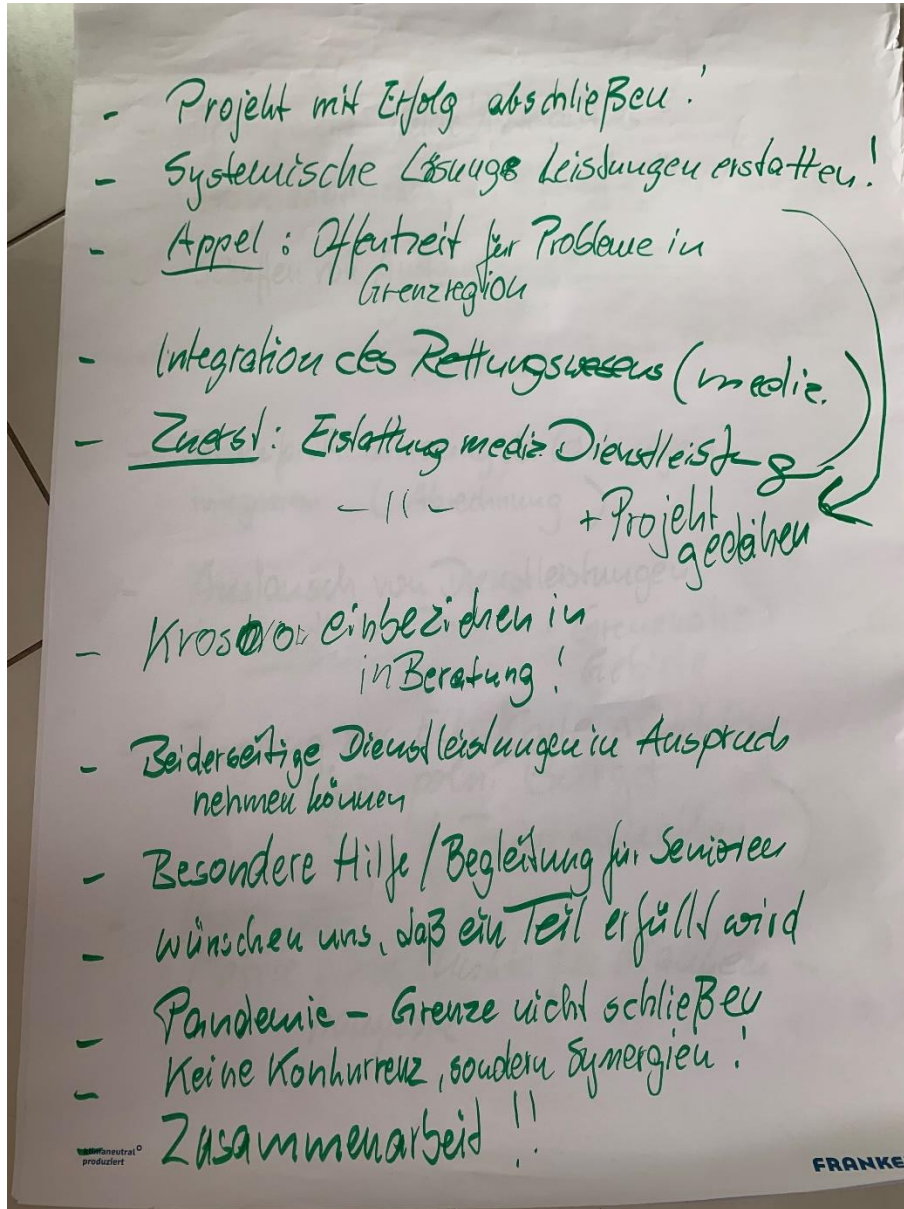 - Projekt mit Erfolg abschließen!
- Systemische Lösung Leistungen erstatten!
- Appel: Offenheit für Probleme in
Grenzregion
- Integration des Rettungswesens (mediz.
- Zuerst: Erstattung mediz. Dienstleistg
-11- + Projekt
einbeziehen in
in Beratung!
- Beiderseitige Dienstleistungen in Anspruch
nehmen können
- Besondere Hilfe/Begleitung für Senioren
- wünschen uns, daß ein Teil erfüllt wird
- Pandemie - Grenze nicht schließen
- Keine Konkurrenz, sondern Synergien!
- Zusammenarbeit!!
klimaneutral
produziert
FRANKE